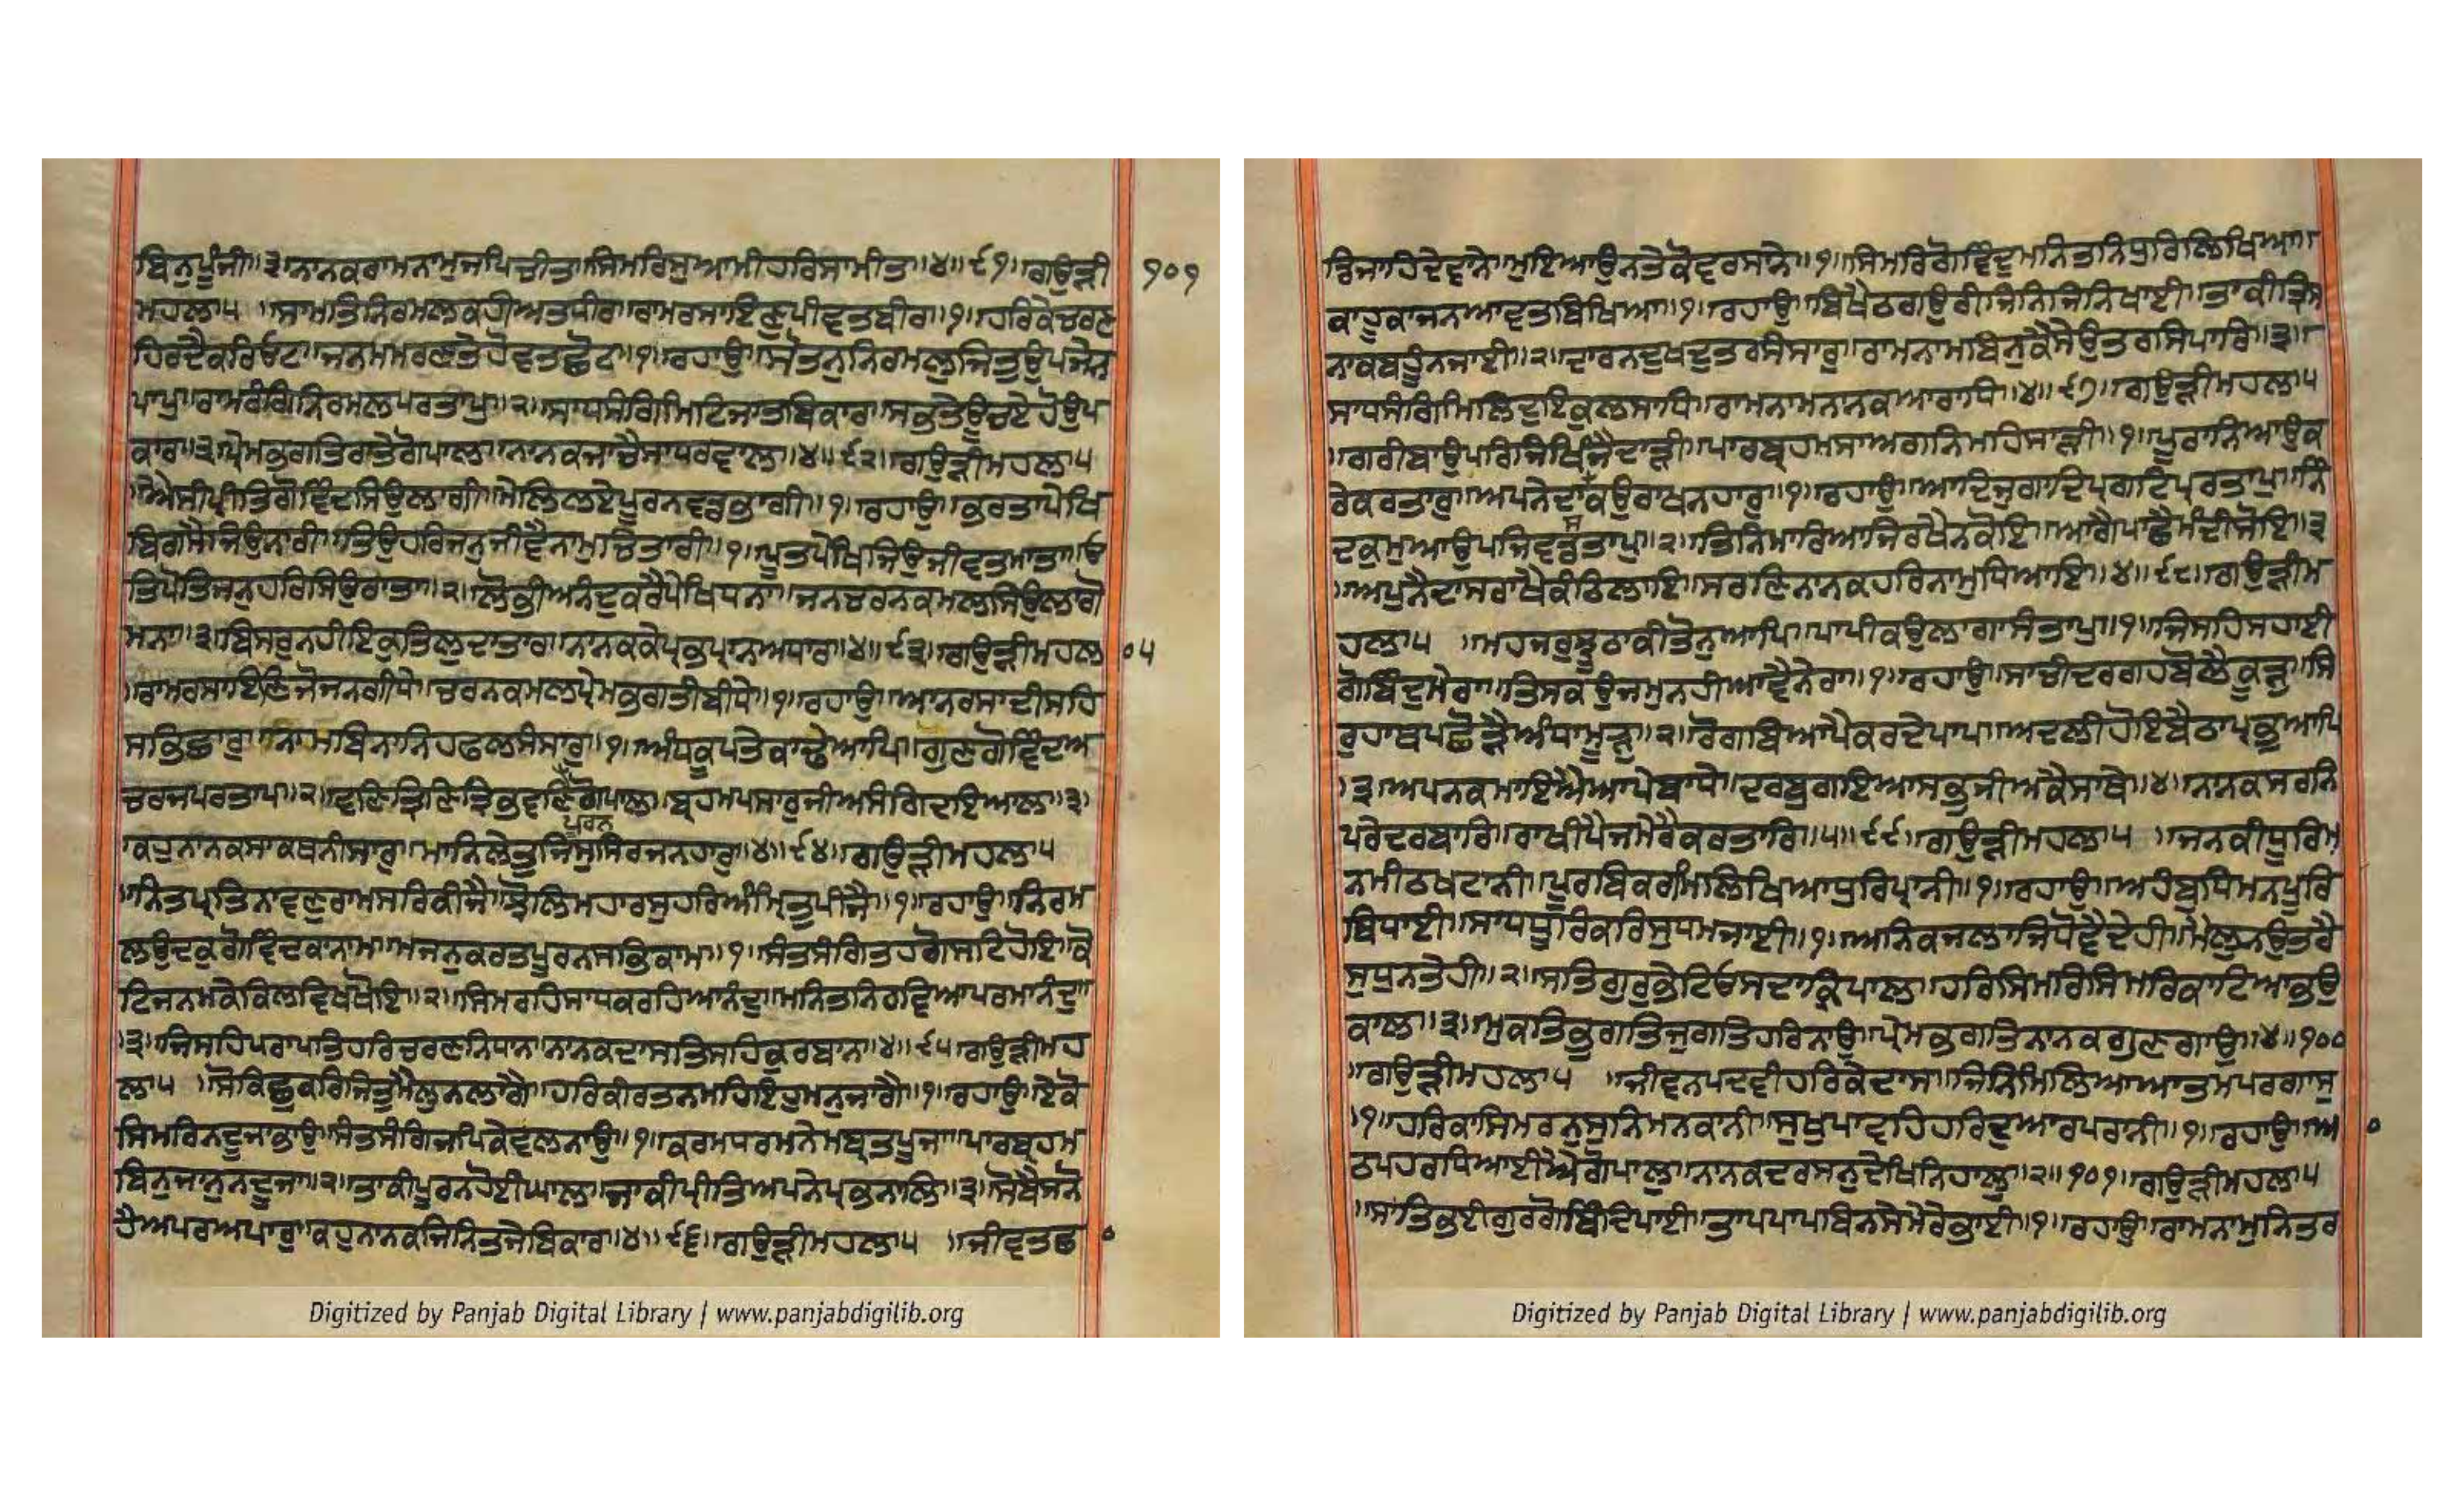 ਬਿਨੁਪੂੰਜੀ॥੩॥ਨਾਨਕਰਾਮਨਾਮੁਜਪਿਚੀਤਾ॥ਸਿਮਰਿਸੁਆਮੀਹਰਿਸਾਮੀਤਾ॥੪॥੯੧॥ਗਉੜੀ
੧੦੧
ਮਹਲਾ੫ ॥ਸਾਮਤਿਨਿਰਮਲਕਹੀਅਤਧੀਰਾ॥ਰਾਮਰਸਾਇਣੁਪੀਵਤਬੀਰਾ॥੧॥ਹਰਿਕੇਚਰਣ
ਹਿਰਦੈਕਰਿਓਟਾ॥ਜਨਮਮਰਣਤੇਹੋਵਤਛੋਟਾ॥੧॥ਰਹਾਉ॥ਸੋਤਨੁਨਿਰਮਲੁਜਿਤੁਉਪਜੈਨ
ਪਾਪੁ॥ਰਾਮਰੰਗਿਨਿਰਮਲਪਰਤਾਪੁ॥੨॥ਸਾਧਸੰਗਿਮਿਟਿਜਾਤਬਿਕਾਰ॥ਸਭਤੇਊਚਏਹੋਉਪ
ਕਾਰ॥੩॥ਪ੍ਰੇਮਭਗਤਿਰਾਤੇਗੋਪਾਲ॥ਨਾਨਕਜਾਚੈਸਾਧਰਵਾਲ॥੪॥੯੨॥ਗਉੜੀਮਹਲਾ੫
॥ਐਸੀਪ੍ਰੀਤਿਗੋਵਿੰਦਸਿਉਲਾਗੀ॥ਮੇਲਿਲਏਪੂਰਨਵਡਭਾਗੀ॥੧॥ਰਹਾਉ॥ਭਰਤਾਪੇਖਿ
ਬਿਗਸੈਜਿਉਨਾਰੀ॥ਤਿਉਹਰਿਜਨੁਜੀਵੈਨਾਮੁਚਿਤਾਰੀ॥੧॥ਪੂਤਪੇਖਿਜਿਉਜੀਵਤਮਾਤਾ॥ਓ
ਤਿਪੋਤਿਜਨੁਹਰਿਸਿਉਰਾਤਾ॥੨॥ਲੋਭੀਅਨੰਦੁਕਰੈਪੇਖਿਧਨਾ॥ਜਨਚਰਨਕਮਲਸਿਉਲਾਗੋ
ਮਨਾ॥੩॥ਬਿਸਰੁਨਹੀਇਕੁਤਿਲੁਦਾਤਾਰ॥ਨਾਨਕਕੇਪ੍ਰਭਪ੍ਰਾਨਅਧਾਰ॥੪॥੯੩॥ਗਉੜੀਮਹਲ
੦੫
॥ਰਾਮਰਸਾਇਣਿਜੋਜਨਗੀਧੇ॥ਚਰਨਕਮਲਪ੍ਰੇਮਭਗਤੀਬੀਧੇ॥੧॥ਰਹਾਉ॥ਆਨਰਸਾਦੀਸਹਿ
ਸਭਿਛਾਰੁ॥ਨਾਮਬਿਨਾਨਿਹਫਲਸੰਸਾਰੁ॥੧॥ਅੰਧਕੂਪਤੇਕਾਢੇਆਪਿ॥ਗੁਣਗੋਵਿੰਦਅ
ਚਰਜਪਰਤਾਪ॥੨॥ਵਣਿਤ੍ਰਿਣਿਤ੍ਰਿਭਵਣਿਗੋਪਾਲ॥ਬ੍ਰਹਮਪਸਾਰੁਜੀਅਸੰਗਿਦਇਆਲ॥੩॥
ਪੂਰਨ
ਕਹੁਨਾਨਕਸਾਕਥਨੀਸਾਰੁ॥ਮਾਨਿਲੇਤੁਜਿਸੁਸਿਰਜਨਹਾਰੁ॥੪॥੯੪॥ਗਉੜੀਮਹਲਾ੫
॥ਨਿਤਪ੍ਰਤਿਨਾਵਣੁਰਾਮਸਰਿਕੀਜੈ॥ਝੋਲਿਮਹਾਰਸੁਹਰਿਅੰਮ੍ਰਿਤੁਪੀਜੈ॥੧॥ਰਹਾਉ॥ਨਿਰਮ
ਲਉਦਕੁਗੋਵਿੰਦਕਾਨਾਮ॥ਮਜਨੁਕਰਤਪੂਰਨਸਭਿਕਾਮ॥੧॥ਸੰਤਸੰਗਿਤਹਗੋਸਟਿਹੋਇ॥ਕੋ
ਟਿਜਨਮਕੇਕਿਲਵਿਖਖੋਇ॥੨॥ਸਿਮਰਹਿਸਾਧਕਰਹਿਆਨੰਦੁ॥ਮਨਿਤਨਿਰਵਿਆਪਰਮਾਨੰਦੁ
॥੩॥ਜਿਸਹਿਪਰਾਪਤਿਹਰਿਚਰਣਨਿਧਾਨ॥ਨਾਨਕਦਾਸਤਿਸਹਿਕੁਰਬਾਨ॥੪॥੯੫॥ਗਉੜੀਮਹ
ਲਾ੫ ॥ਸੋਕਿਛੁਕਰਿਜਿਤੁਮੈਲੁਨਲਾਗੈ॥ਹਰਿਕੀਰਤਨਮਹਿਇਹੁਮਨੁਜਾਗੈ॥੧॥ਰਹਾਉ॥ਏਕੋ
ਸਿਮਰਿਨਦੂਜਾਭਾਉ॥ਸੰਤਸੰਗਿਜਪਿਕੇਵਲਨਾਉ॥੧॥ਕਰਮਧਰਮਨੇਮਬ੍ਰਤਪੂਜਾ॥ਪਾਰਬ੍ਰਹਮ
ਬਿਨੁਜਾਨੁਨਦੂਜਾ॥੨॥ਤਾਕੀਪੂਰਨਹੋਈਘਾਲ॥ਜਾਕੀਪ੍ਰੀਤਿਅਪਨੇਪ੍ਰਭਨਾਲਿ॥੩॥ਸੋਬੈਸਨੋ
ਹੈਅਪਰਅਪਾਰੁ॥ਕਹੁਨਾਨਕਜਿਨਿਤਜੇਬਿਕਾਰ॥੪॥੯੬॥ਗਉੜੀਮਹਲਾ੫ ॥ਜੀਵਤਛ
੦
Digitized by Panjab Digital Library | www.panjabdigilib.org
ਡਿਜਾਹਿਦੇਵਾਨੇ॥ਮੁਇਆਉਨਤੇਕੋਵਰਸਾਨੇ॥੧॥ਸਿਮਰਿਗੋਵਿੰਦੁਮਨਿਤਨਿਧੁਰਿਲਿਖਿਆ॥
ਕਾਹੂਕਾਜਨਆਵਤਬਿਖਿਆ॥੧॥ਰਹਾਉ॥ਬਿਖੈਠਗਉਰੀਜਿਨਿਜਿਨਿਖਾਈ॥ਤਾਕੀਤ੍ਰਿਸ
ਨਾਕਬਹੂੰਨਜਾਈ॥੨॥ਦਾਰਨਦੁਖਦੁਤਰਸੰਸਾਰੁ॥ਰਾਮਨਾਮਬਿਨੁਕੈਸੇਉਤਰਸਿਪਾਰਿ॥੩॥
ਸਾਧਸੰਗਿਮਿਲਿਦੁਇਕੁਲਸਾਧਿ॥ਰਾਮਨਾਮਨਾਨਕਆਰਾਧਿ॥੪॥੯੭॥ਗਉੜੀਮਹਲਾ੫
॥ਗਰੀਬਾਉਪਰਿਜਿਖਿੰਜੈਦਾੜੀ॥ਪਾਰਬ੍ਰਹਮਸਾਅਗਨਿਮਹਿਸਾੜੀ॥੧॥ਪੂਰਾਨਿਆਉਕ
ਰੇਕਰਤਾਰੁ॥ਅਪਨੇਦਾਸਕਉਰਾਖਨਹਾਰੁ॥੧॥ਰਹਾਉ॥ਆਦਿਜੁਗਾਦਿਪ੍ਰਗਟਿਪ੍ਰਤਾਪੁ॥ਨਿੰ
ਦਕੁਮੁਆਉਪਜਿਵਡਤਾਪੁ॥੨॥ਤਿਨਿਮਾਰਿਆਜਿਰਖੈਨਕੋਇ॥ਆਗੈਪਾਛੈਮੰਦੀਸੋਇ॥੩
॥ਅਪੁਨੈਦਾਸਰਾਖੈਕੰਠਿਲਾਇ॥ਸਰਣਿਨਾਨਕਹਰਿਨਾਮੁਧਿਆਇ॥੪॥੯੮॥ਗਉੜੀਮ
ਹਲਾ੫ ॥ਮਹਜਰੁਝੂਠਾਕੀਤੋਨੁਆਪਿ॥ਪਾਪੀਕਉਲਾਗਾਸੰਤਾਪੁ॥੧॥ਜਿਸਹਿਸਹਾਈ
ਗੋਬਿੰਦੁਮੇਰਾ॥ਤਿਸਕਉਜਮੁਨਹੀਆਵੈਨੇਰਾ॥੧॥ਰਹਾਉ॥ਸਾਚੀਦਰਗਹਬੋਲੈਕੂੜੁ॥ਸਿ
ਰੁਹਾਥਪਛੋੜੈਅੰਧਾਮੂੜੁ॥੨॥ਰੋਗਬਿਆਪੇਕਰਦੇਪਾਪ॥ਅਦਲੀਹੋਇਬੈਠਾਪ੍ਰਭੁਆਪਿ
॥੩॥ਅਪਨਕਮਾਇਐਆਪੇਬਾਧੇ॥ਦਰਬੁਗਇਆਸਭੁਜੀਅਕੈਸਾਥੇ॥੪॥ਨਾਨਕਸਰਨਿ
ਪਰੇਦਰਬਾਰਿ॥ਰਾਖੀਪੈਜਮੇਰੈਕਰਤਾਰਿ॥੫॥੯੯॥ਗਉੜੀਮਹਲਾ੫ ॥ਜਨਕੀਧੂਰਿਮ
ਨਮੀਠਖਟਾਨੀ॥ਪੂਰਬਿਕਰਮਿਲਿਖਿਆਧੁਰਿਪ੍ਰਾਨੀ॥੧॥ਰਹਾਉ॥ਅਹੰਬੁਧਿਮਨਪੂਰਿ
ਥਿਧਾਈ॥ਸਾਧਧੂਰਿਕਰਿਸੁਧਮਜਾਈ॥੧॥ਅਨਿਕਜਲਾਜਿਧੋਵੈਦੇਹੀ॥ਮੈਲੁਨਉਤਰੈ
ਸੁਧੁਨਤੇਹੀ॥੨॥ਸਤਿਗੁਰੁਭੇਟਿਓਸਦਾਕ੍ਰਿਪਾਲ॥ਹਰਿਸਿਮਰਿਸਿਮਰਿਕਾਟਿਆਭਉ
ਕਾਲ॥੩॥ਮੁਕਤਿਭੁਗਤਿਜੁਗਤਿਹਰਿਨਾਉ॥ਪ੍ਰੇਮਭਗਤਿਨਾਨਕਗੁਣਗਾਉ॥੪॥੧੦੦
॥ਗਉੜੀਮਹਲਾ੫ ॥ਜੀਵਨਪਦਵੀਹਰਿਕੇਦਾਸ॥ਜਿਨਿਮਿਲਿਆਆਤਮਪਰਗਾਸੁ
॥੧॥ਹਰਿਕਾਸਿਮਰਨੁਸੁਨਿਮਨਕਾਨੀ॥ਸੁਖੁਪਾਵਹਿਹਰਿਦੁਆਰਪਰਾਨੀ॥੧॥ਰਹਾਉ॥ਆ
੦
ਠਪਹਰਧਿਆਈਐਗੋਪਾਲੁ॥ਨਾਨਕਦਰਸਨੁਦੇਖਿਨਿਹਾਲੁ॥੨॥੧੦੧॥ਗਉੜੀਮਹਲਾ੫
॥ਸਾਤਿਭਈਗੁਰਗੋਬਿੰਦਿਪਾਈ॥ਤਾਪਪਾਪਬਿਨਸੇਮੇਰੇਭਾਈ॥੧॥ਰਹਾਉ॥ਰਾਮਨਾਮੁਨਿਤਰ
Digitized by Panjab Digital Library | www.panjabdigilib.org